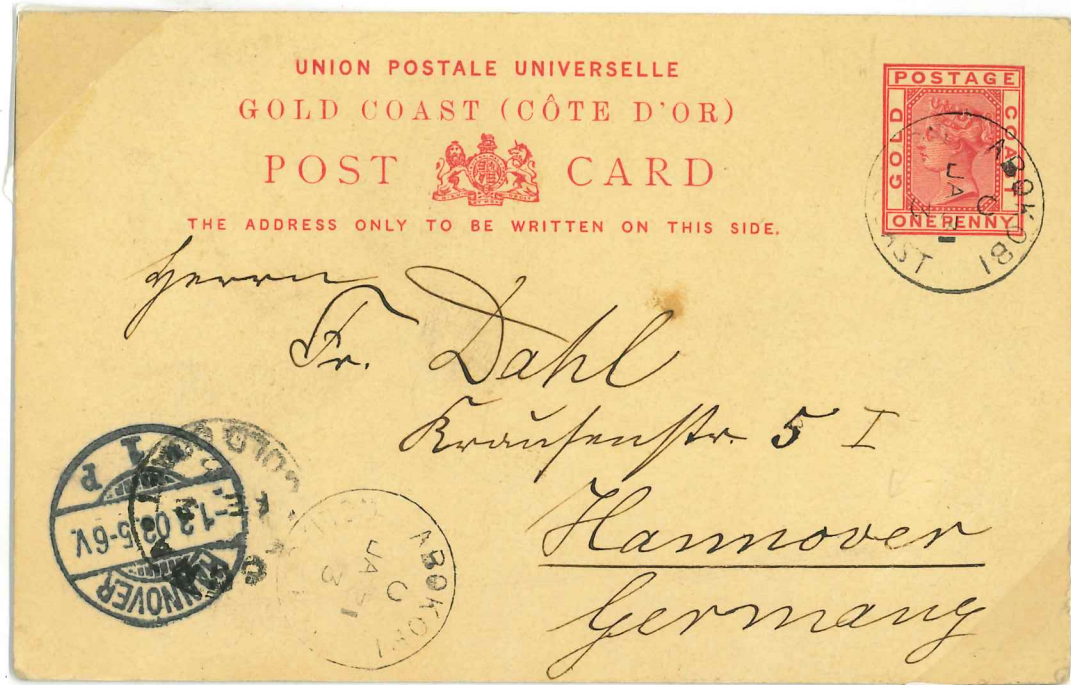 UNION POSTALE UNIVERSELLE
GOLD COAST (CÔTE D'OR)
POST CARD
THE ADDRESS ONLY TO BE WRITTEN ON THIS SIDE.
POSTAGE
GOLD COAST
ONE PENNY
ABOKOBI
C
JA
Herrn
Fr. Dahl
Krausenstr. 5 I
Hannover
Germany
1
P
-1.2.03. 5-6V.
HANNOVER
ABOKOBI
C
JA 1
3